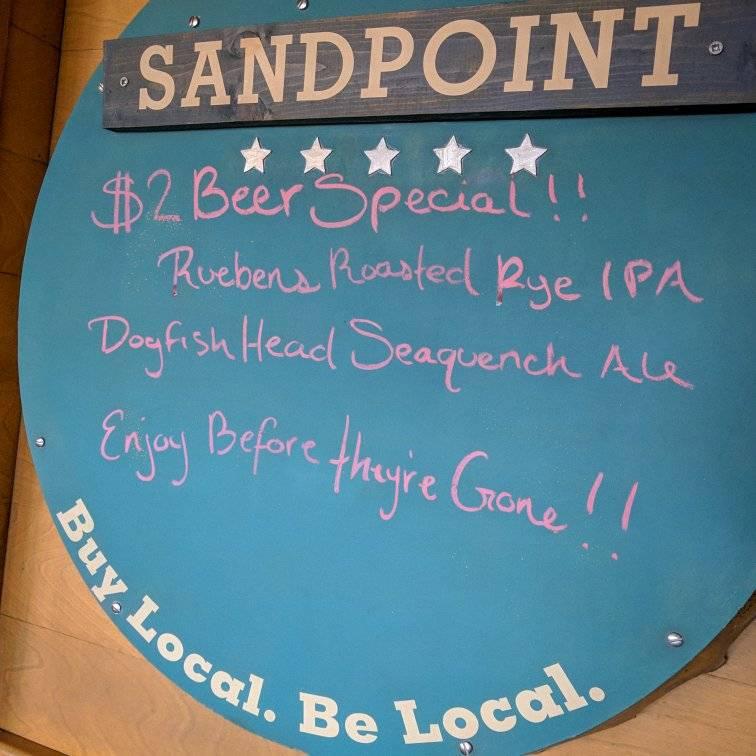 SANDPOINT
$2 Beer Special!!
Ruebens Roasted Rye IPA
Dogfish Head Seaquench Ale
Enjoy Before they're Gone!!
Buy Local. Be Local.